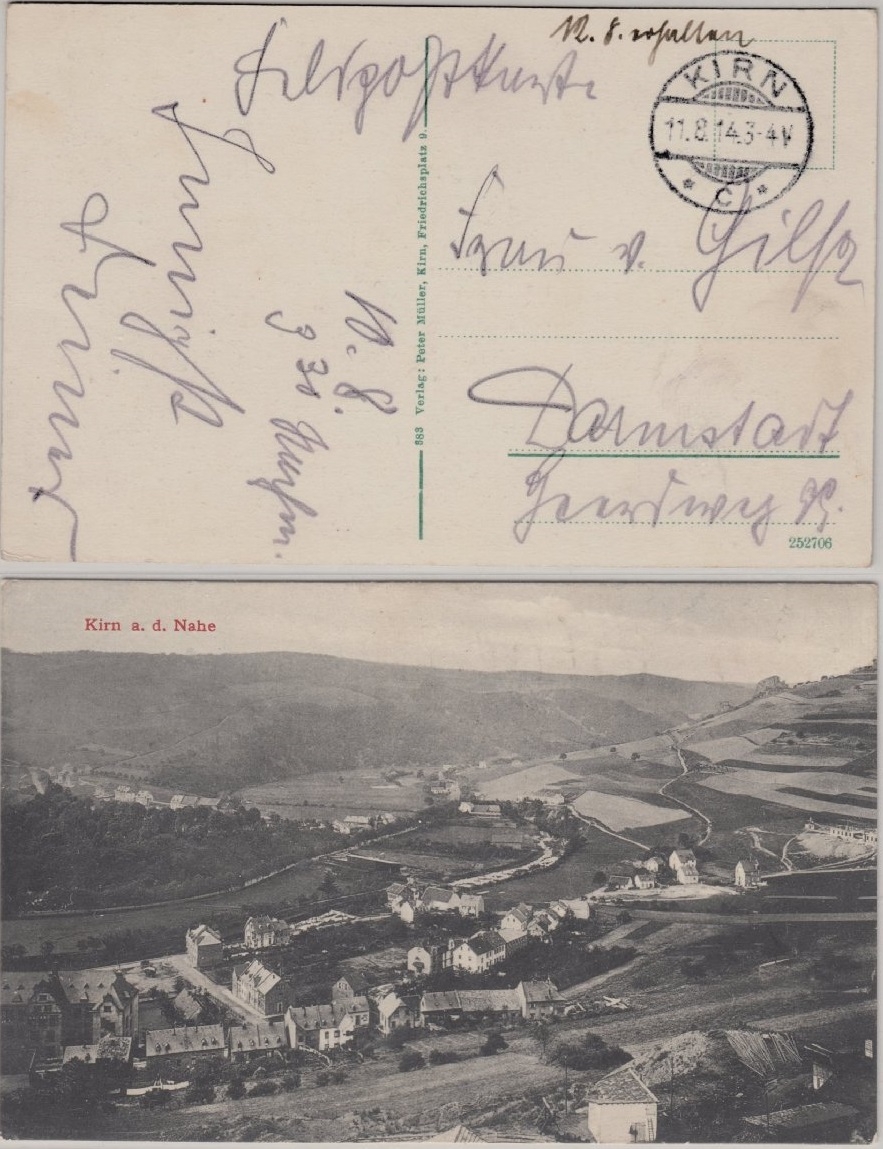 12. 8. erhalten
Feldpostkarte
KIRN
11.8.14.3-4N
* C *
Innigst
10. 8.
9 30 Nachm.
883 Verlag: Peter Müller, Kirn, Friedrichsplatz 9.
Frau v. Gilsa
Darmstadt
weg 99.
252706
Kirn a. d. Nahe